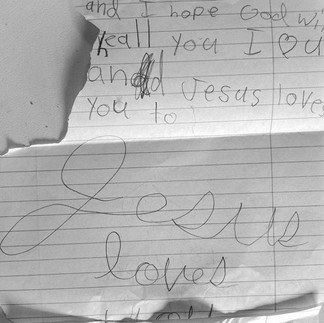 and I hope God wi
heall you I ♡ u
and Jesus loves
you to
Jesus
loves